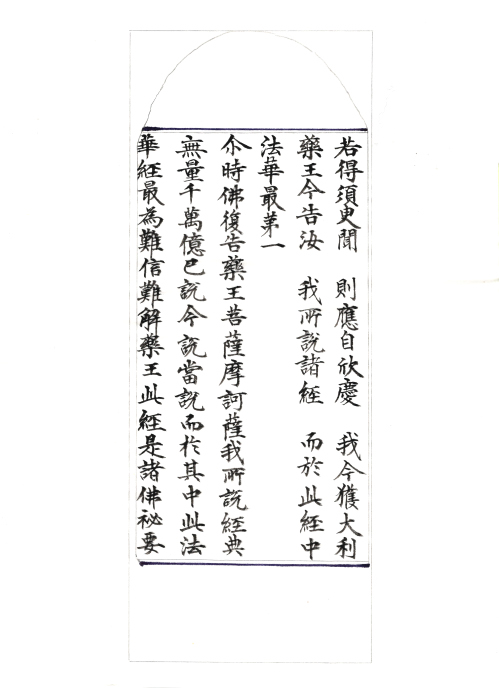 若得須臾聞　則應自欣慶　我今獲大利
藥王今告汝　我所說諸經　而於此經中
法華最第一
尒時佛復告藥王菩薩摩訶薩我所說經典
無量千萬億已說今說當說而於其中此法
華經最為難信難解藥王此經是諸佛祕要